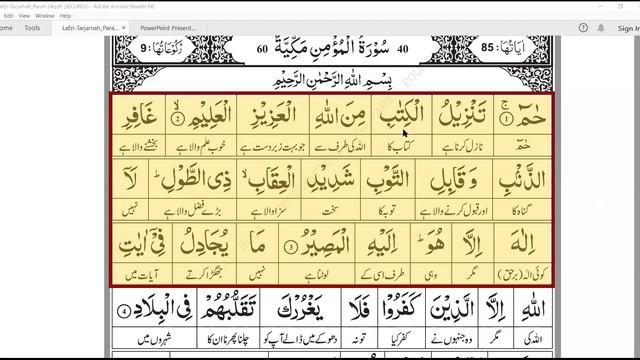 Lafzi-Tarjamah_Parah-24.pdf (SECURED) - Adobe Acrobat Reader DC
View Window Help
Tools Lafzi-Tarjamah_Para... × PowerPoint Present...
Sign In
اٰیَاتُهَا: 85 40 سُوْرَةُ الْمُؤْمِنِ مَكِّيَّةٌ 60 رُكُوْعَاتُهَا: 9
بِسْمِ اللهِ الرَّحْمٰنِ الرَّحِيْمِ
حٰمٓ ۚ ﴿1﴾ تَنْزِيْلُ الْكِتٰبِ مِنَ اللهِ الْعَزِيْزِ الْعَلِيْمِ ۙ ﴿2﴾ غَافِرِ
حٰمٓ نازل کرنا ہے کتاب کا اللہ کی طرف سے جو بہت زبردست ہے خوب علم والا ہے بخشنے والا ہے
الذَّنْۢبِ وَ قَابِلِ التَّوْبِ شَدِيْدِ الْعِقَابِ ۙ ذِی الطَّوْلِ ؕ لَاۤ
گناہ کا اور قبول کرنے والا ہے توبہ کا سخت سزا والا ہے بڑے فضل والا ہے نہیں
اِلٰهَ اِلَّا هُوَ ؕ اِلَيْهِ الْمَصِيْرُ ﴿3﴾ مَا يُجَادِلُ فِیْۤ اٰيٰتِ
کوئی الٰہ (برحق) مگر وہی طرف اسی کے لوٹنا ہے نہیں جھگڑا کرتے آیات میں
اللهِ اِلَّا الَّذِيْنَ كَفَرُوْا فَلَا يَغْرُرْكَ تَقَلُّبُهُمْ فِی الْبِلَادِ ﴿4﴾
اللہ کی مگر وہ جنہوں نے کفر کیا تو نہ دھوکے میں ڈالے آپ کو چلنا پھرنا ان کا شہروں میں